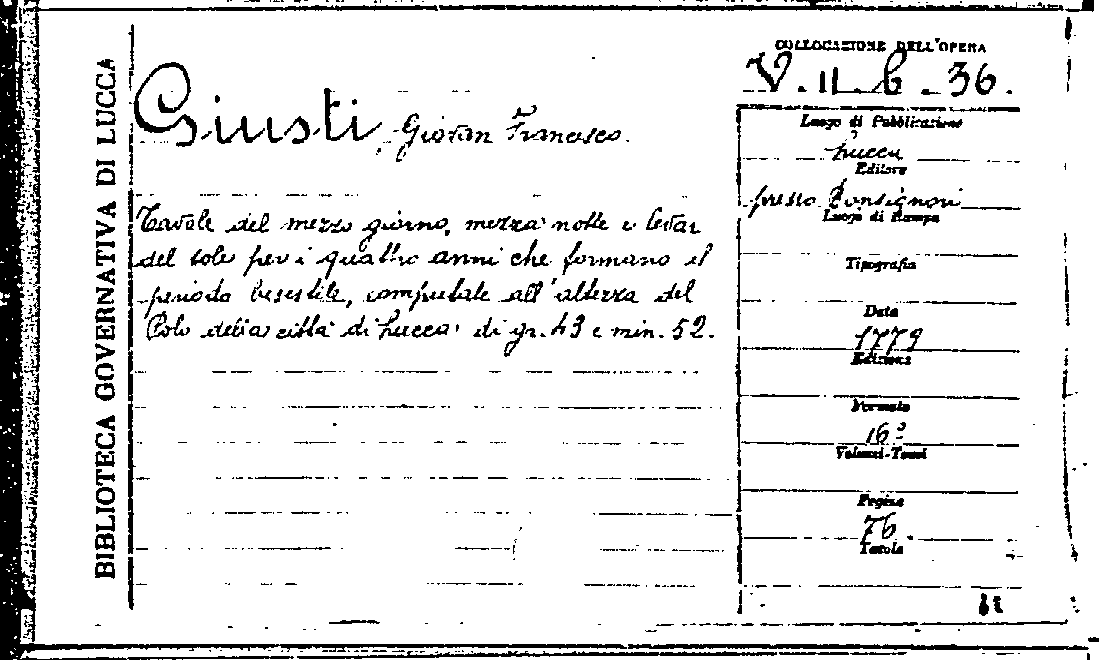 BIBLIOTECA GOVERNATIVA DI LUCCA
Giusti, Giovan Francesco.
Tavole del mezzo giorno, mezza notte e levar
del sole per i quattro anni che formano il
periodo bisestile, computate all'altezza del
Polo della città di Lucca di gr. 43 e min. 52.
COLLOCAZIONE DELL'OPERA
V. II. b. 36.
Luogo di Pubblicazione
Lucca
Editore
presso Bonsignori
Luogo di Stampa
Tipografia
Data
1779
Edizione
Formato
16°
Volumi-Tomi
Pagine
76.
Tavole